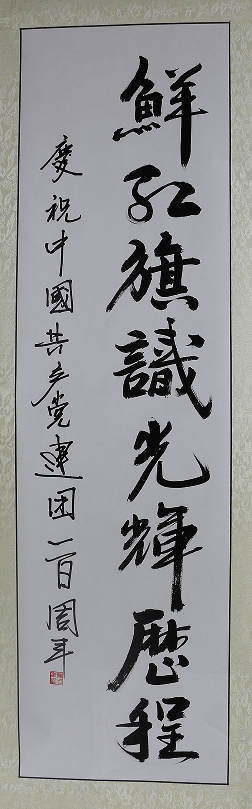 鮮紅旗識光輝歷程
慶祝中國共产党建团一百周年